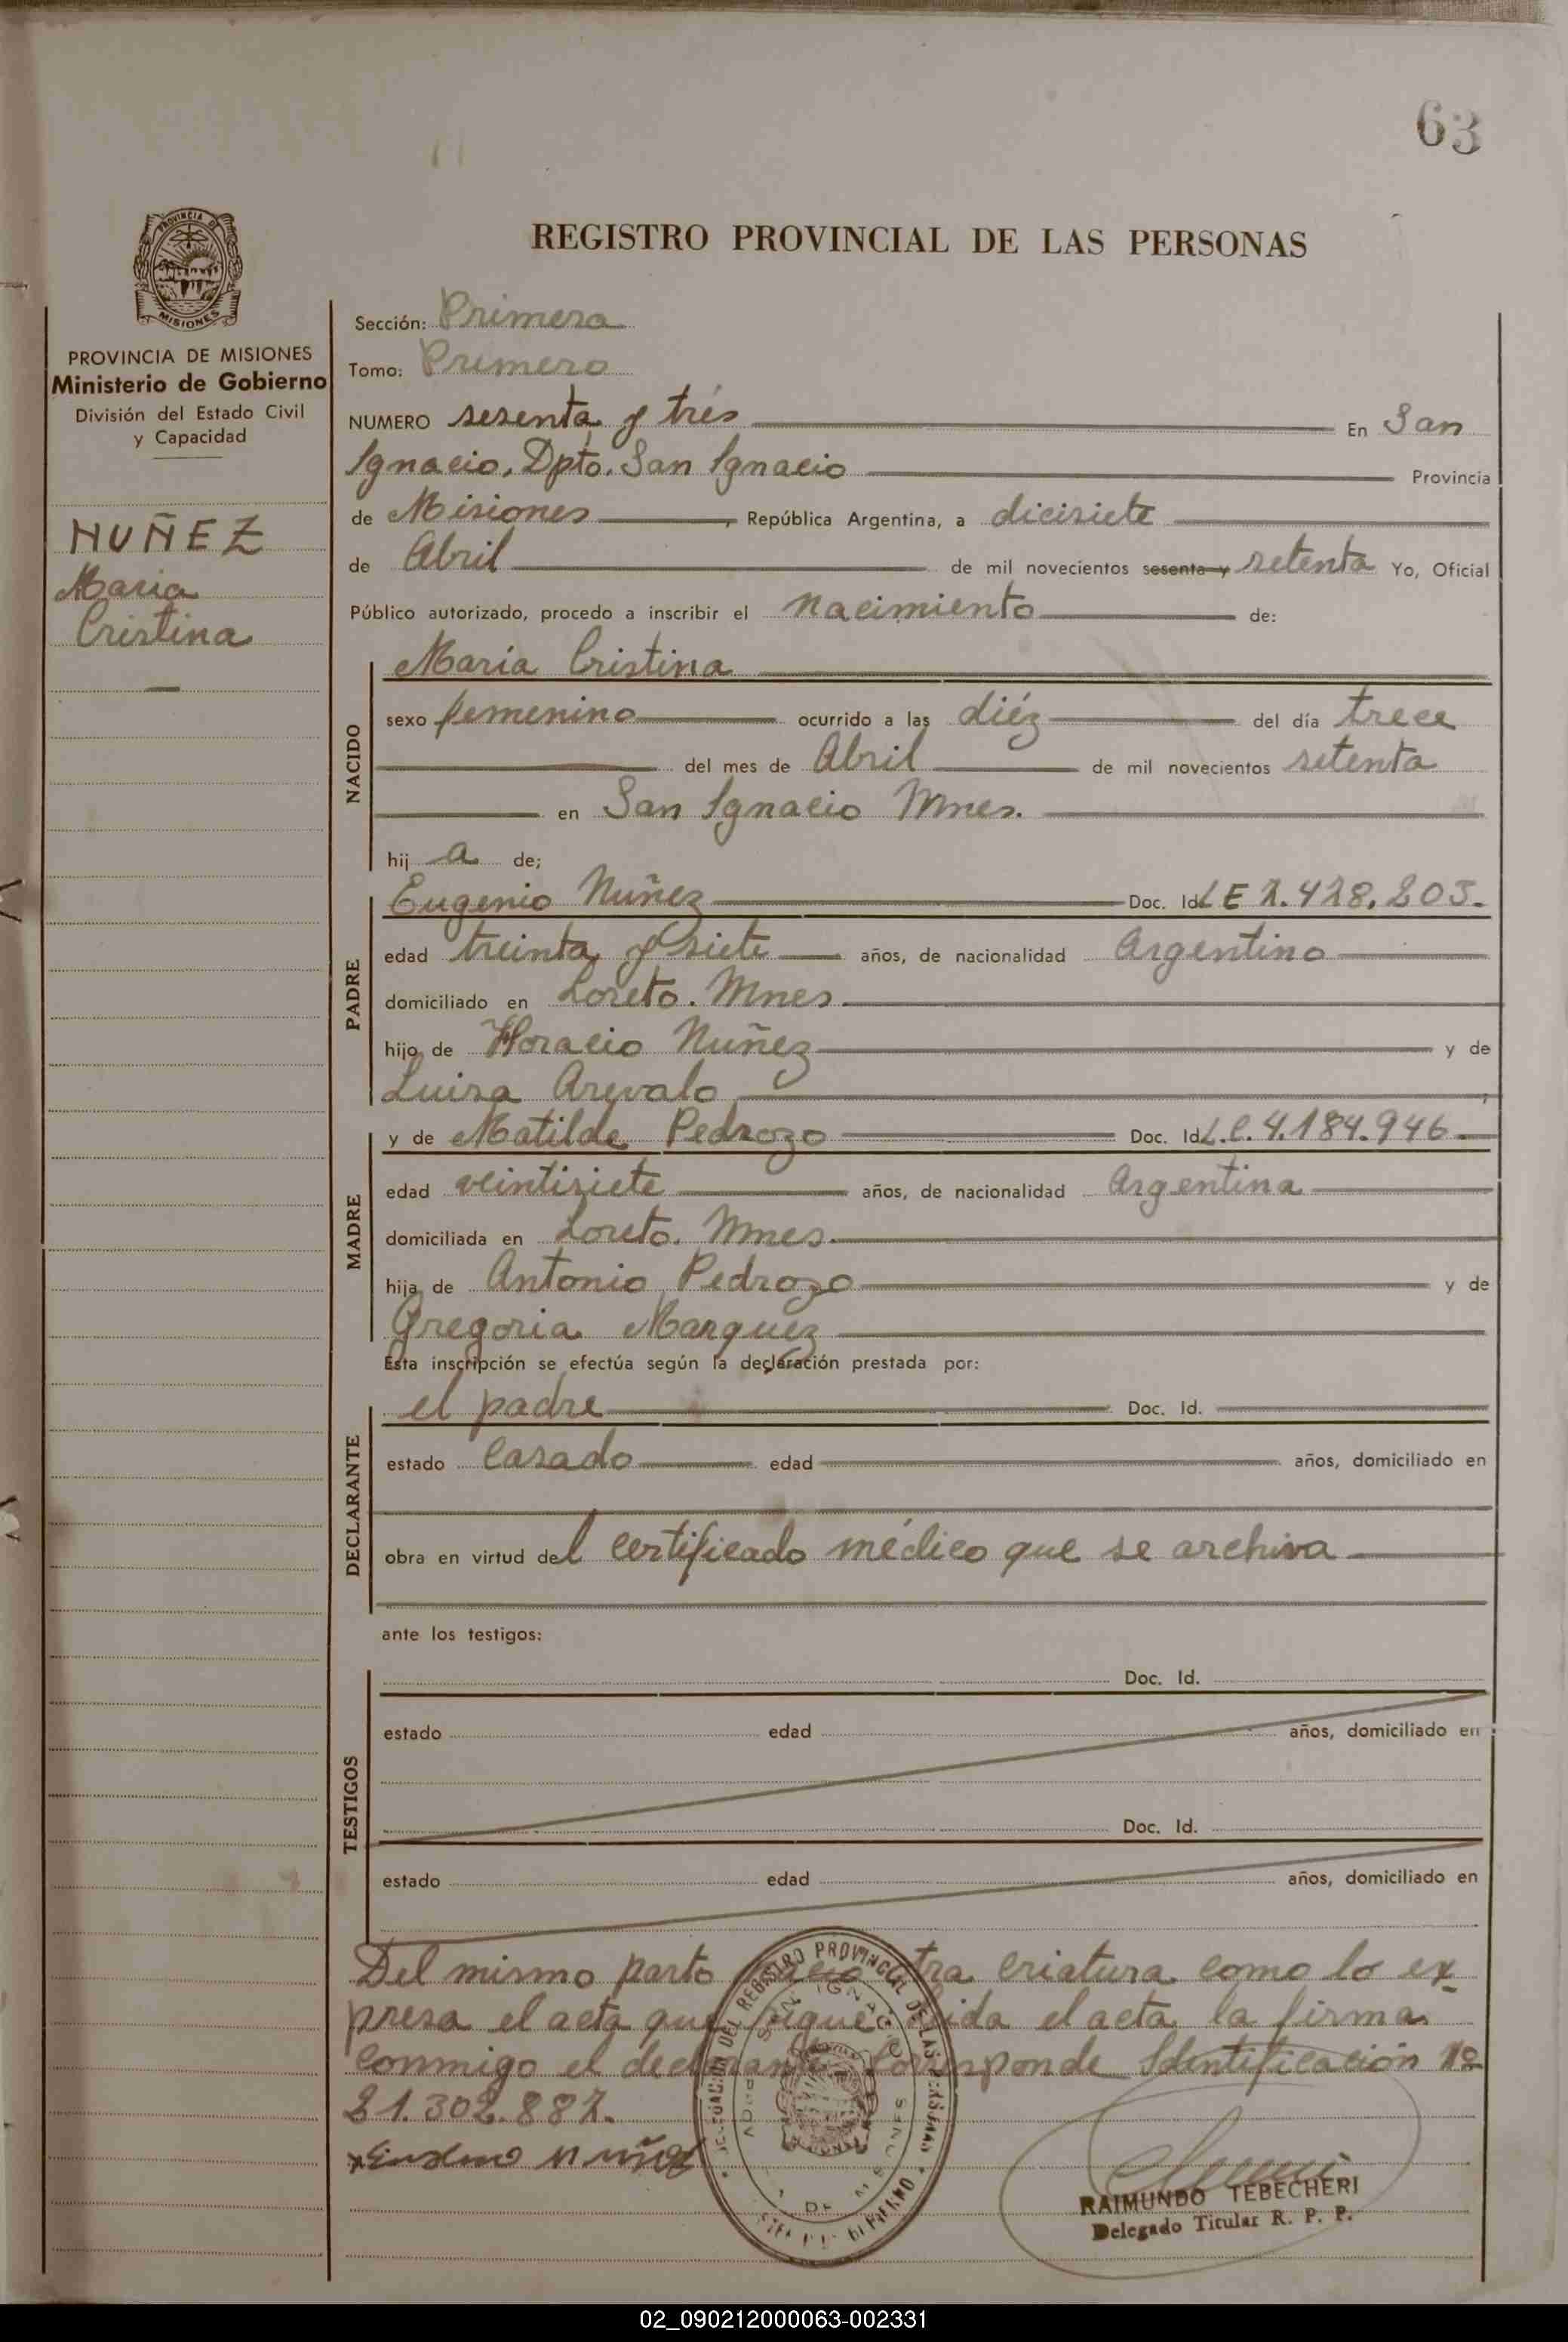 63
REGISTRO PROVINCIAL DE LAS PERSONAS
PROVINCIA DE
MISIONES
PROVINCIA DE MISIONES
Ministerio de Gobierno
División del Estado Civil
y Capacidad
NUÑEZ
Maria
Cristina
Sección: Primera
Tomo: Primero
NUMERO sesenta y trés En San
Ignacio, Dpto. San Ignacio Provincia
de Misiones, República Argentina, a dicisiete
de Abril de mil novecientos sesenta y setenta Yo, Oficial
Público autorizado, procedo a inscribir el nacimiento de:
NACIDO
María Cristina
sexo femenino ocurrido a las diéz del día trece
del mes de Abril de mil novecientos setenta
en San Ignacio Mnes.
hij a de;
PADRE
Eugenio Nuñez Doc. Id. LE 7.428.203.
edad treinta y siete años, de nacionalidad Argentino
domiciliado en Loreto. Mnes
hijo de Horacio Nuñez y de
Luisa Arevalo
MADRE
y de Matilde Pedrozo Doc. Id. L.C. 4.184.946
edad veintisiete años, de nacionalidad Argentina
domiciliada en Loreto. Mnes.
hija de Antonio Pedrozo y de
Gregoria Marquez
Esta inscripción se efectúa según la declaración prestada por:
DECLARANTE
el padre Doc. Id.
estado Casado edad años, domiciliado en
obra en virtud del certificado médico que se archiva
ante los testigos:
TESTIGOS
Doc. Id.
estado edad años, domiciliado en
Doc. Id.
estado edad años, domiciliado en
Del mismo parto nació otra criatura como lo ex
presa el acta que sigue leida el acta la firma
conmigo el declarante Corresponde Identificación Nº
21.302.887.
Nuñez
DELEGACION DEL REGISTRO PROVINCIAL DE LAS PERSONAS
SAN IGNACIO
RAIMUNDO TEBECHERI
Delegado Titular R. P. P.
02_090212000063-002331